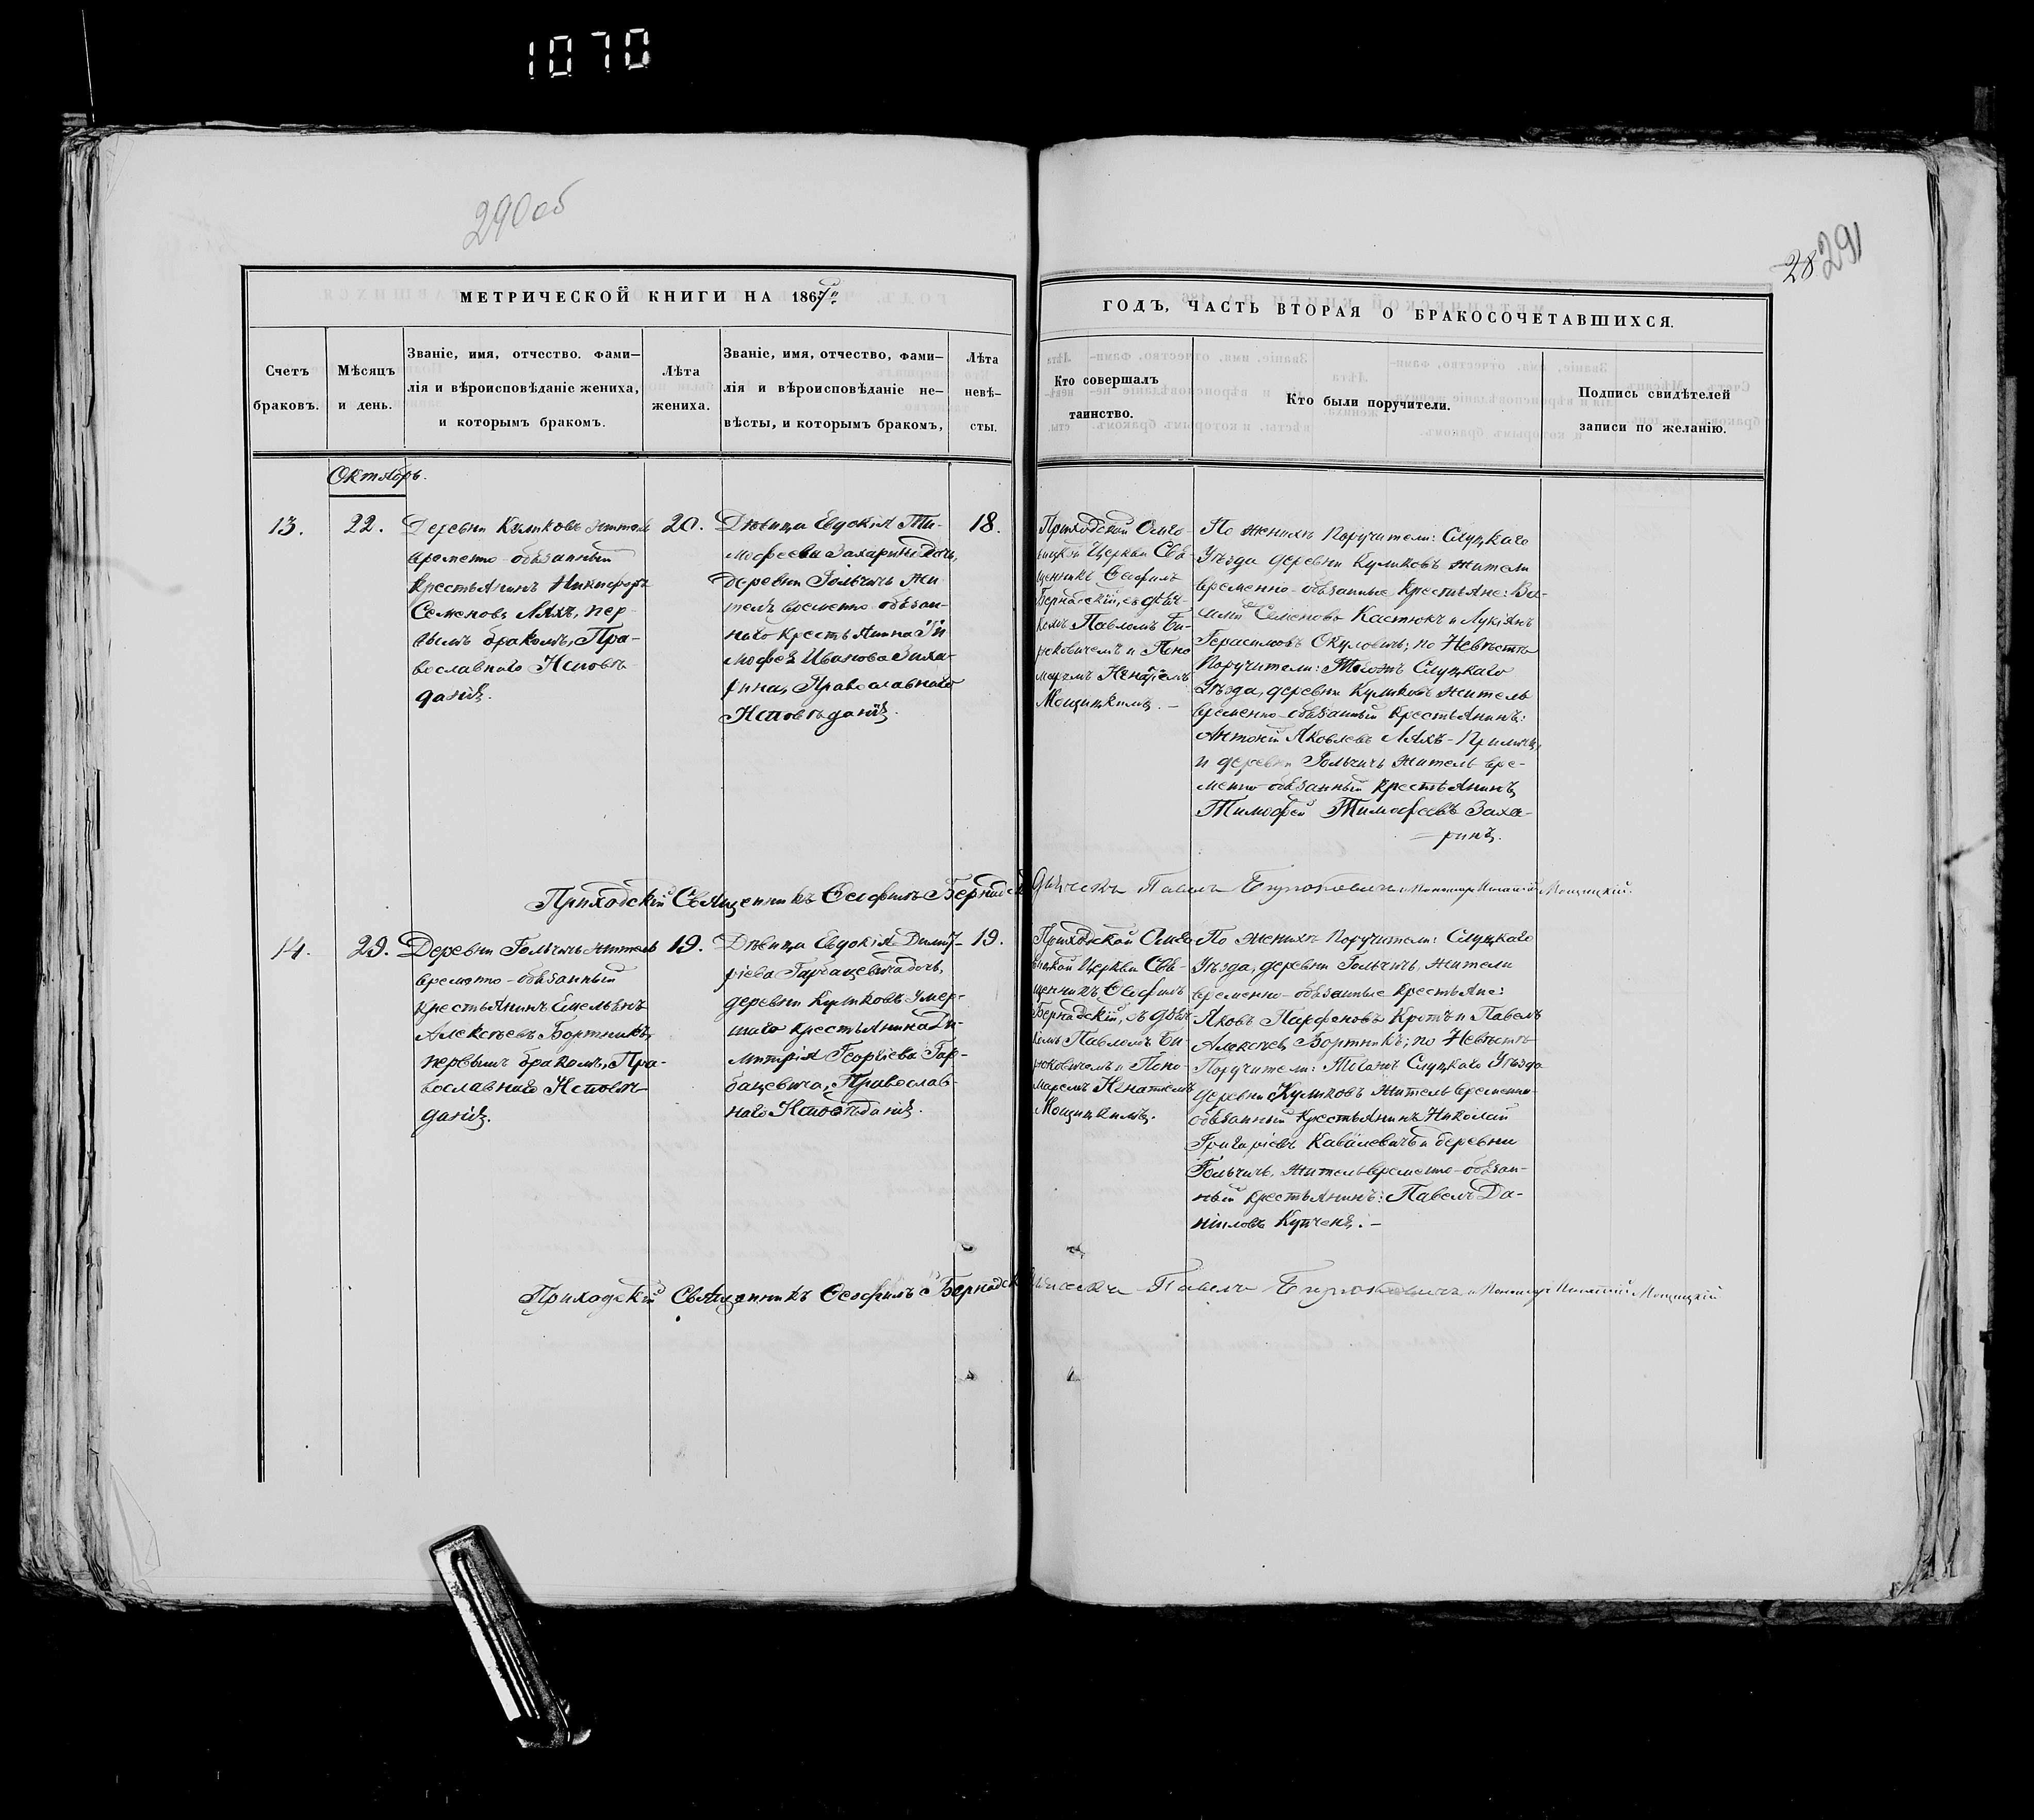 1070
290об
28 291
МЕТРИЧЕСКОЙ КНИГИ НА 1867й
ГОДЪ, ЧАСТЬ ВТОРАЯ О БРАКОСОЧЕТАВШИХСЯ.
Счетъ
браковъ.
Мѣсяцъ
и день.
Званіе, имя, отчество. фами-
лія и вѣроисповѣданіе жениха,
и которымъ бракомъ.
Лѣта
жениха.
Званіе, имя, отчество, фами-
лія и вѣроисповѣданіе не-
вѣсты, и которымъ бракомъ,
Лѣта
невѣ-
сты.
Кто совершалъ
таинство.
Кто были поручители.
Подпись свидѣтелей
записи по желанію.
Октябрь.
13.
22.
Деревни Куликовъ житель
временно-обязанный
крестьянинъ Никифоръ
Семеновъ Ляхъ, пер-
вымъ бракомъ, Пра-
вославнаго Исповѣ-
данія.
20.
Дѣвица Евдокія Ти-
мофеева Захарина дочь,
деревни Гольчичъ жи-
теля временно-обязан-
наго крестьянина Ти
мофея Иванова Заха-
рина, Православнаго
Исповѣданія.
18.
Приходской
вицкой Церкви Свя-
щенникъ Ѳеофилъ
Бернадскій, съ дьяч-
комъ Павломъ Би-
рюковичемъ и Поно
маремъ Игнатіемъ
Мощицкимъ. -
По женихѣ Поручители: Слуцкаго
Уѣзда деревни Куликовъ жители
временно-обязанные крестьяне: Ва-
силій Семеновъ Кастюкъ и Лукіянъ
Герасимовъ Окуловичъ; по Невѣстѣ
Поручители: Тогожъ Слуцкаго
Уѣзда, деревни Куликовъ житель
временно-обязанный крестьянинъ:
Антоній Яковлевъ Ляхъ-
и деревни Гольчичъ житель вре-
менно-обязанный крестьянинъ
Тимофей Тимофеевъ Заха-
ринъ.
Приходскій Священникъ Ѳеофилъ Бернадскій Дьячекъ Павелъ Бирюковичъ и Пономарь Игнатій Мощицкій.
14.
29.
Деревни Гольчичъ житель
временно-обязанный
крестьянинъ Емельянъ
Алексѣевъ Бортникъ,
первымъ бракомъ, Пра-
вославнаго Исповѣ-
данія.
19.
Дѣвица Евдокія Димит-
ріева Гарбацевича дочь,
деревни Куликовъ умер-
шаго крестьянина Ди-
митрія Георгіева Гар-
бацевича, Православ-
наго Исповѣданія.
19.
Приходской
вицкой Церкви Свя-
щенникъ Ѳеофилъ
Бернадскій, съ дьяч-
комъ Павломъ Би-
рюковичемъ и Поно-
маремъ Игнатіемъ
Мощицкимъ.
По женихѣ Поручители: Слуцкаго
Уѣзда, деревни Гольчичъ, жители
временно-обязанные крестьяне:
Яковъ Парфеновъ Кротъ и Павелъ
Алексѣевъ Бортникъ; по Невѣстѣ
Поручители: Тогожъ Слуцкаго Уѣзда
деревни Куликовъ житель временно-
обязанный крестьянинъ Николай
Григоріевъ Кавалевичъ и деревни
Гольчичъ, житель временно-обязан-
ный крестьянинъ: Павелъ Да-
ніиловъ Купченя. -
Приходскій Священникъ Ѳеофилъ Бернадскій Дьячекъ Павелъ Бирюковичъ и Пономарь Игнатій Мощицкій